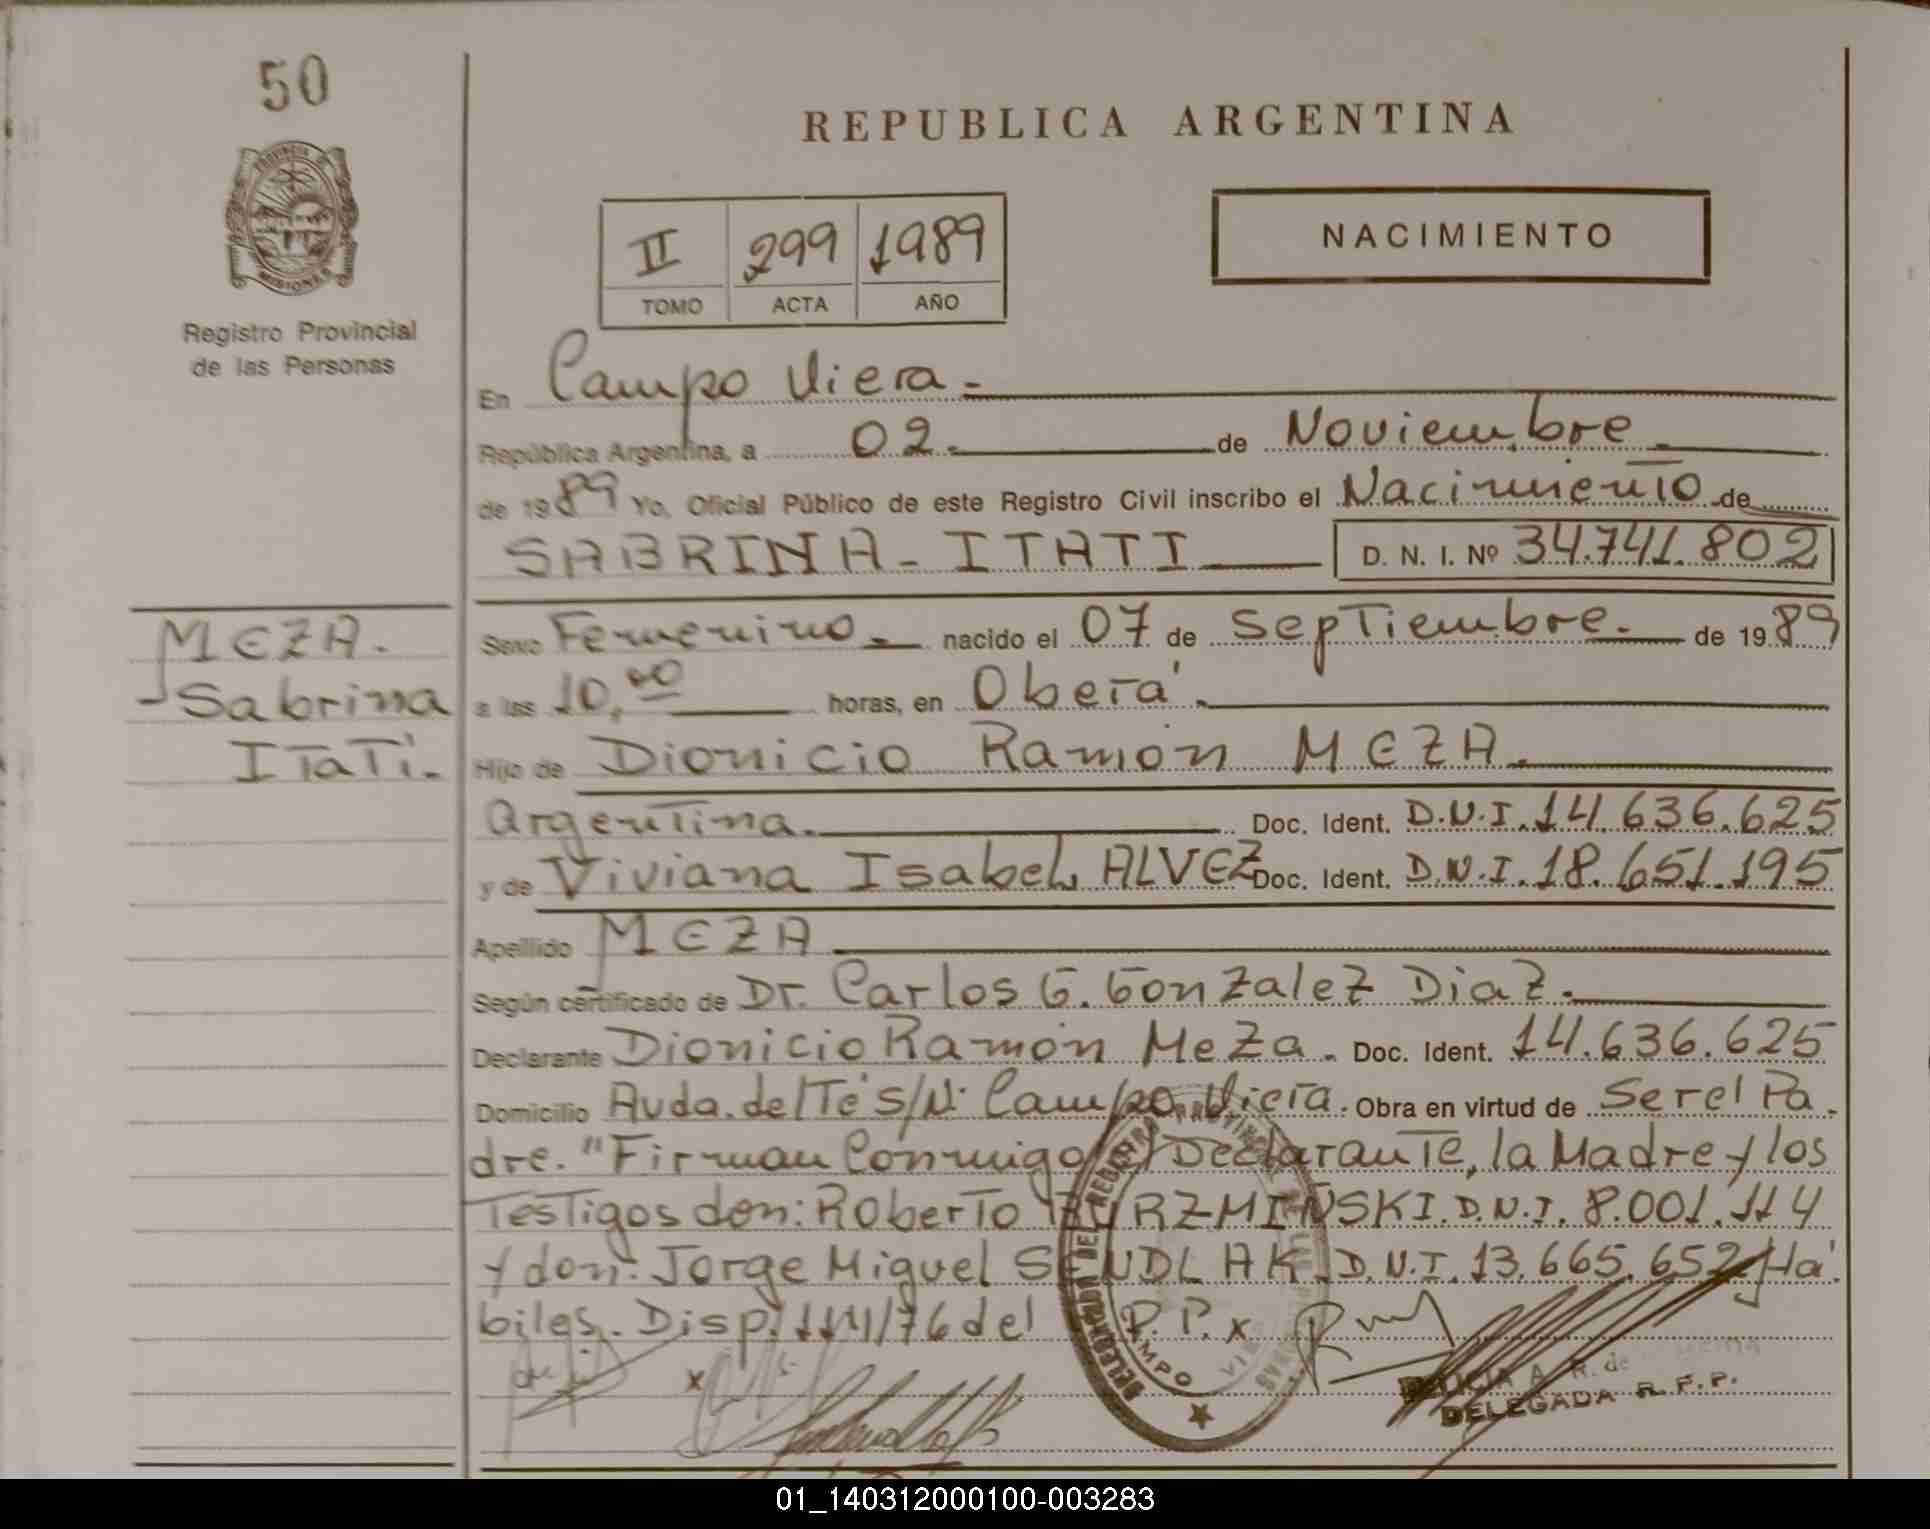 50
REPUBLICA ARGENTINA
PROVINCIA DE
MISIONES
Registro Provincial
de las Personas
II 299 1989
TOMO ACTA AÑO
NACIMIENTO
En Campo Viera.-
República Argentina, a 02.- de Noviembre.-
de 1989 Yo, Oficial Público de este Registro Civil inscribo el Nacimiento de
SABRINA - ITATI D. N. I. Nº 34.741.802
MEZA.
Sabrina
ITaTí.-
Sexo Femenino.- nacido el 07 de SepTiembre.- de 1989
a las 10,00 horas, en Oberá.-
Hijo de Dionicio Ramón MEZA.-
ArgenTina.- Doc. Ident. D.N.I. 14.636.625
y de Viviana Isabel ALVEZ Doc. Ident. D.N.I. 18.651.195
Apellido MEZA
Según certificado de Dr. Carlos G. Gonzalez Diaz.-
Declarante Dionicio Ramón Meza. Doc. Ident. 14.636.625
Domicilio Avda. del Té S/N. Campo Viera. Obra en virtud de Ser el Pa-
dre. "Firman Conmigo el DeclaranTe, la Madre y los
TesTigos don: RoberTo BURZMIÑSKI. D.N.I. 8.001.114
y don: Jorge Miguel SENDLAK D.N.I. 13.665.652 Há-
biles. Disp. 114/76 del R.P.P. x
x
DELEGACION DEL REGISTRO PROVINCIAL DE LAS PERSONAS
CAMPO VIERA
A. R. de
DELEGADA R.P.P.
01_140312000100-003283